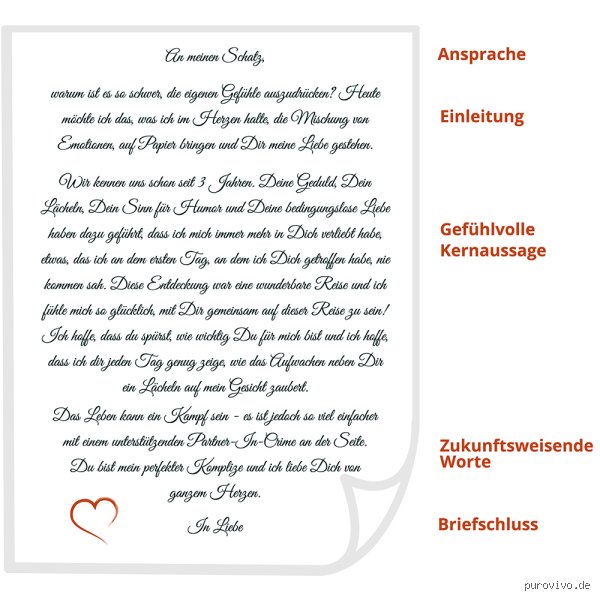 An meinen Schatz,
Ansprache
warum ist es so schwer, die eigenen Gefühle auszudrücken? Heute
möchte ich das, was ich im Herzen halte, die Mischung von
Emotionen, auf Papier bringen und Dir meine Liebe gestehen.
Einleitung
Wir kennen uns schon seit 3 Jahren. Deine Geduld, Dein
Lächeln, Dein Sinn für Humor und Deine bedingungslose Liebe
haben dazu geführt, dass ich mich immer mehr in Dich verliebt habe,
etwas, das ich an dem ersten Tag, an dem ich Dich getroffen habe, nie
kommen sah. Diese Entdeckung war eine wunderbare Reise und ich
fühle mich so glücklich, mit Dir gemeinsam auf dieser Reise zu sein!
Ich hoffe, dass du spürst, wie wichtig Du für mich bist und ich hoffe,
dass ich dir jeden Tag genug zeige, wie das Aufwachen neben Dir
ein Lächeln auf mein Gesicht zaubert.
Gefühlvolle
Kernaussage
Das Leben kann ein Kampf sein - es ist jedoch so viel einfacher
mit einem unterstützenden Partner-In-Crime an der Seite.
Du bist mein perfekter Komplize und ich liebe Dich von
ganzem Herzen.
Zukunftsweisende
Worte
In Liebe
Briefschluss
purovivo.de